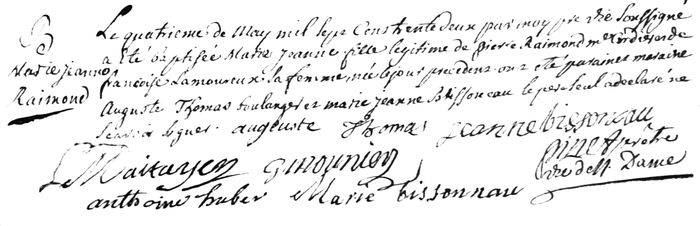 B
Marie Jeanne
Raimond
Le quatrieme de May mil sept Cens trente deux par moy pretre Vic Soussigné
a été baptisée Marie Jeanne fille legitime de pierre Raimond
françoise Lamoureux sa femme, née le jour precedent ont été parain et maraine
Auguste Thomas boulanger et marie Jeanne Bissonneau le pere seul a declaré ne
scavoir signer auguste Thomas jeanne bissonau
anthoine huber Marie bissonnau
pretre
vic de N Dame